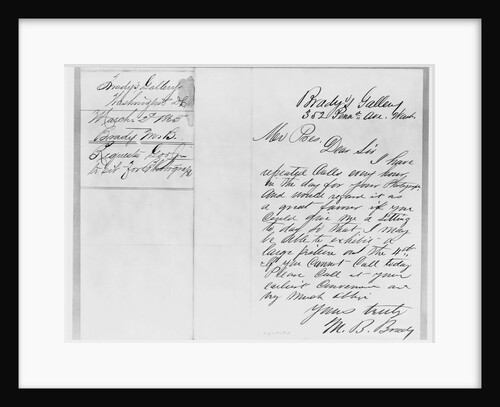 Brady's Gallery
Washington D.C.
March 2d 1865
Brady M. B.
Requests Gov J
to sit for Photograph
Brady's Gallery
352 Penna. Ave. Wash.
Mr Pres.
Dear Sir
I have
repeated calls every hour
in the day for your Photograph
and would regard it as
a great favor if you
could give me a sitting
to day so that I may
be able to exhibit a
large picture on the 4th.
If you cannot call today
Please call at your
earliest convenience and
very much oblige
Yours truly
M. B. Brady